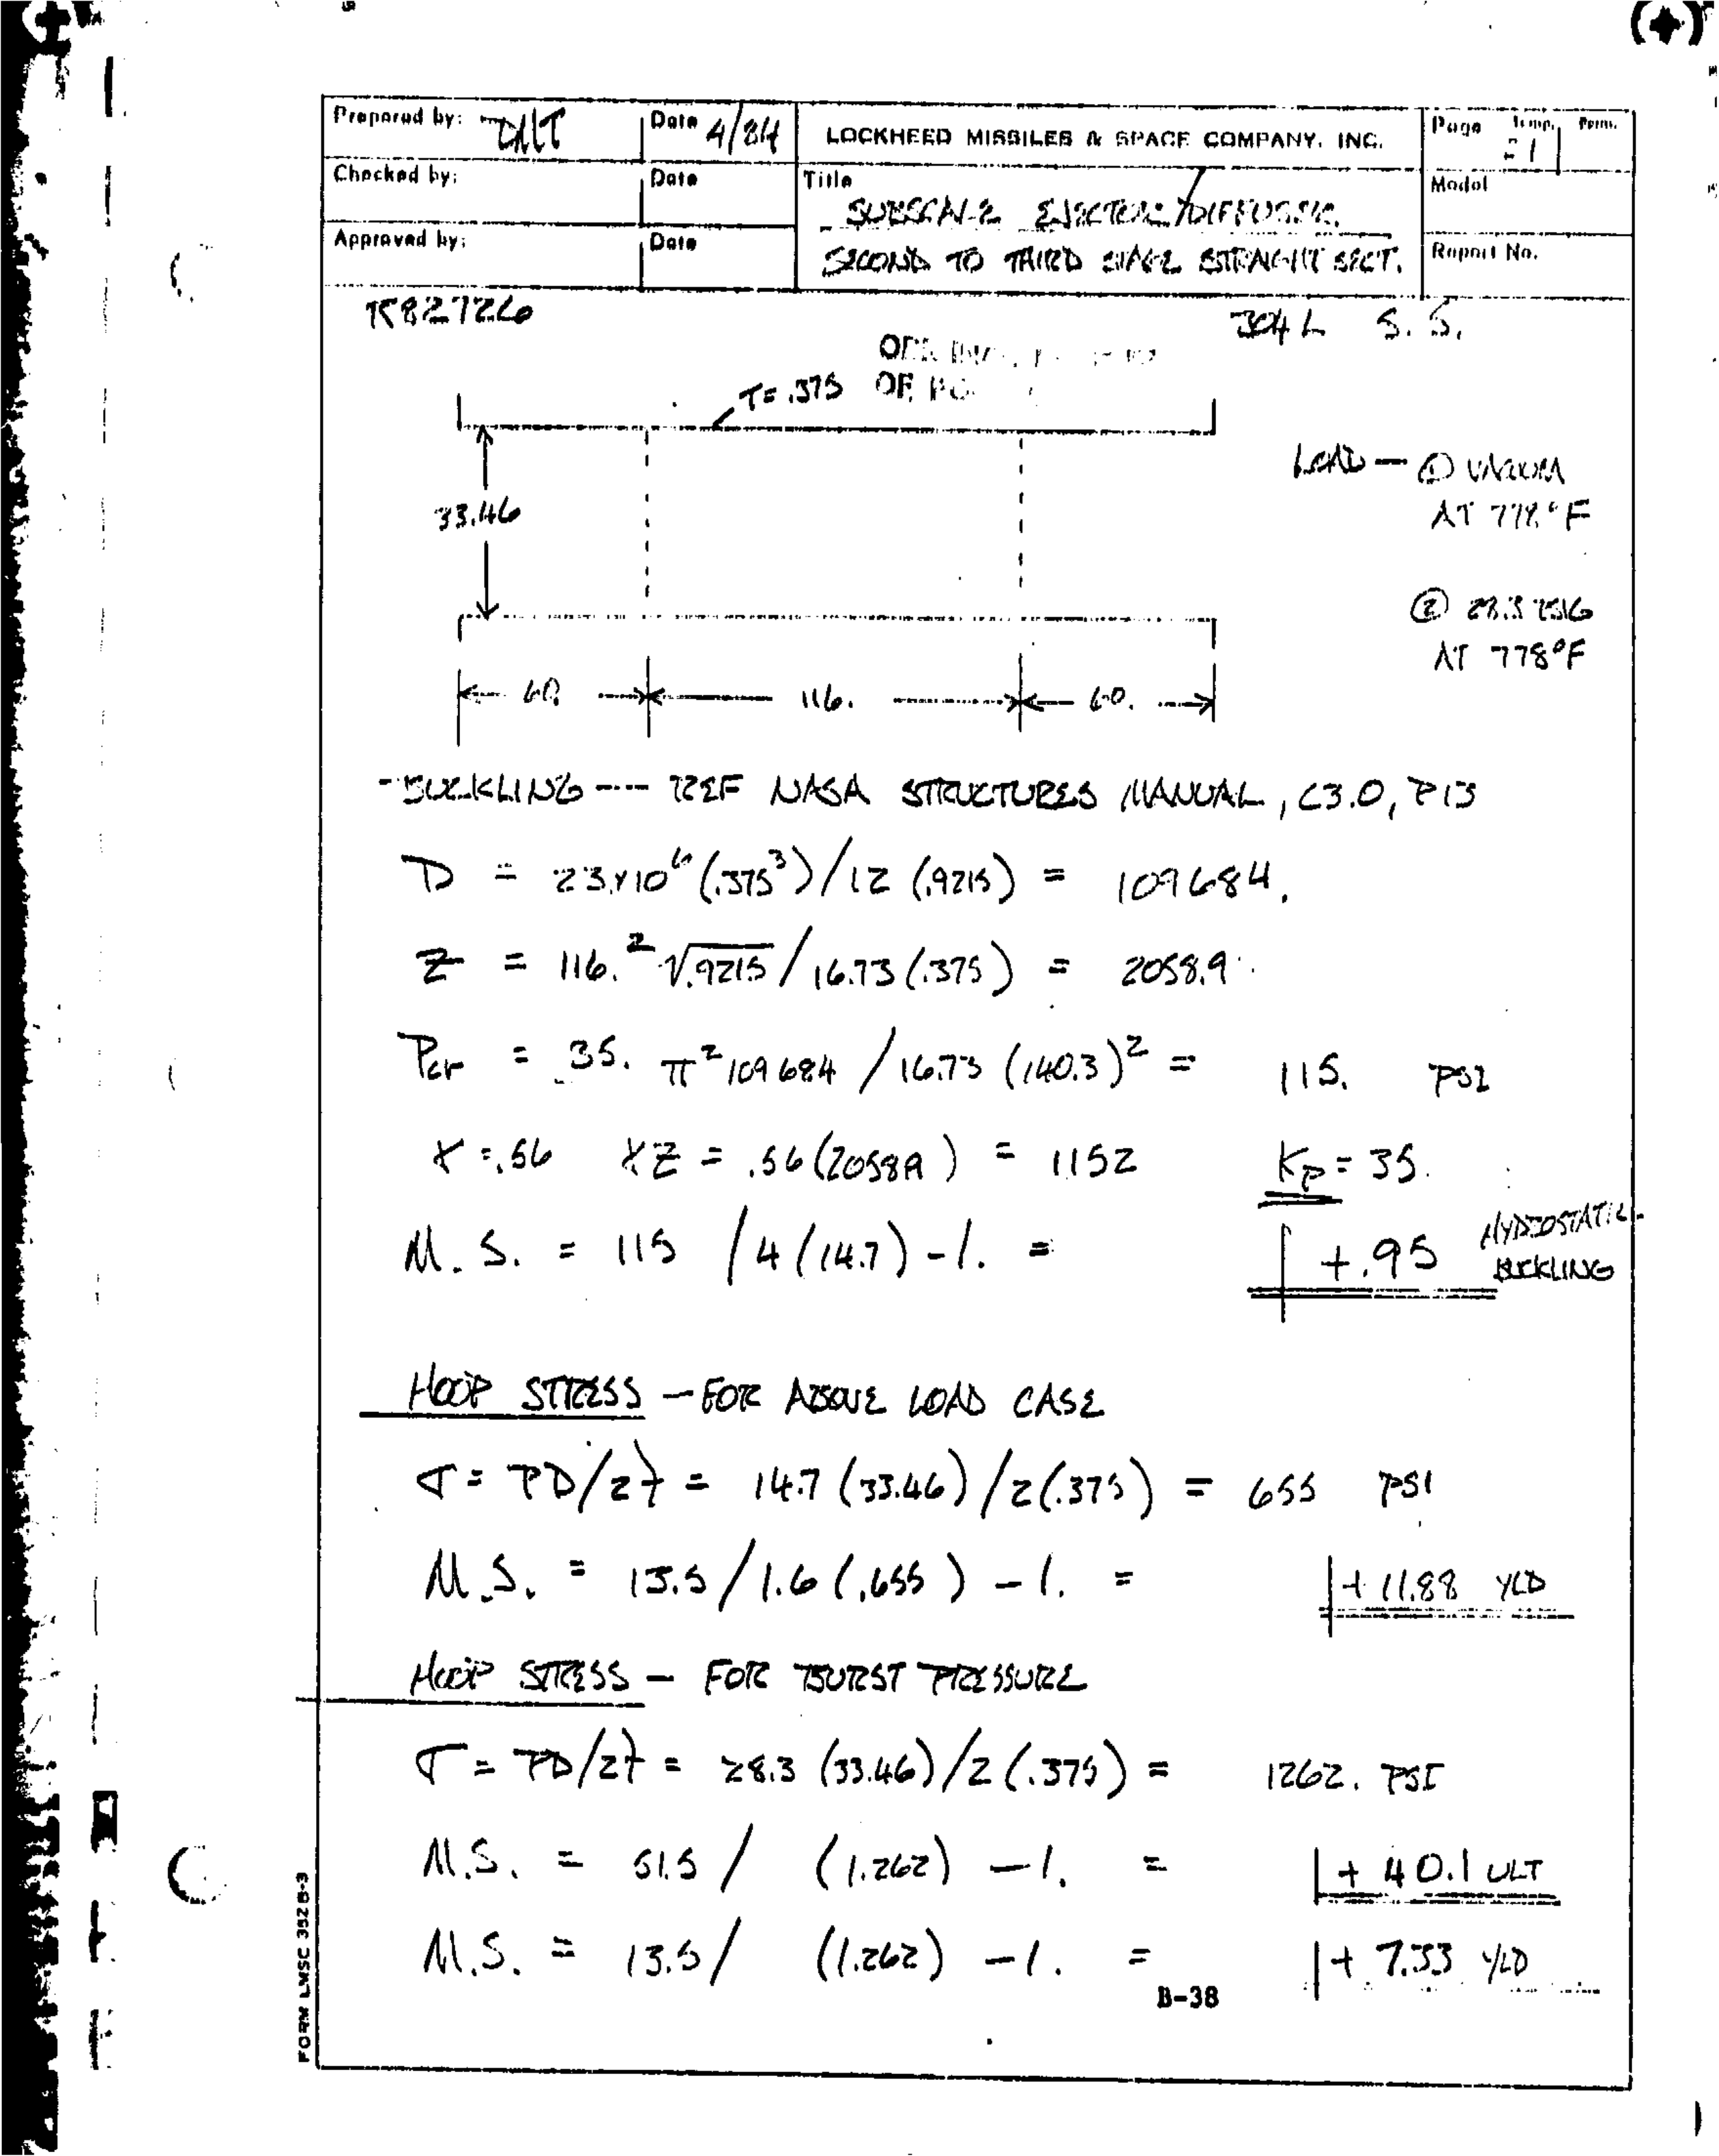 Prepared by: Date 4/84 LOCKHEED MISSILES & SPACE COMPANY, INC. Page Temp. Perm.
Checked by: Date Title Model
SUBSCALE EJECTOR/DIFFUSER.
Approved by: Date SECOND TO THIRD STAGE STRAIGHT SECT. Report No.
R82726 304L S.S.
OF
T=.375
LOAD — ① VACUUM
AT 778°F
33.46
② 28.3 PSIG
AT 778°F
60. 116. 60.
-BUCKLING --- REF NASA STRUCTURES MANUAL, C3.0, P13
D = 23.x10⁶ (.375³)/12 (.9215) = 109684.
Z = 116.² √.9215 / 16.73 (.375) = 2058.9
Pcr = 35. π² 109684 / 16.73 (140.3)² = 115. PSI
γ=.56 γZ = .56 (2058.9) = 1152 Kp = 35.
M.S. = 115 / 4 (14.7) -1. = +.95 HYDROSTATIC
BUCKLING
HOOP STRESS — FOR ABOVE LOAD CASE
σ = PD/2t = 14.7 (33.46) / 2 (.375) = 655 PSI
M.S. = 13.5 / 1.6 (.655) - 1. = + 11.88 YLD
HOOP STRESS — FOR BURST PRESSURE
σ = PD/2t = 28.3 (33.46) / 2 (.375) = 1262. PSI
M.S. = 51.5 / (1.262) - 1. = + 40.1 ULT
M.S. = 13.5 / (1.262) - 1. = + 7.33 YLD
B-38
FORM LMSC 352 B-3